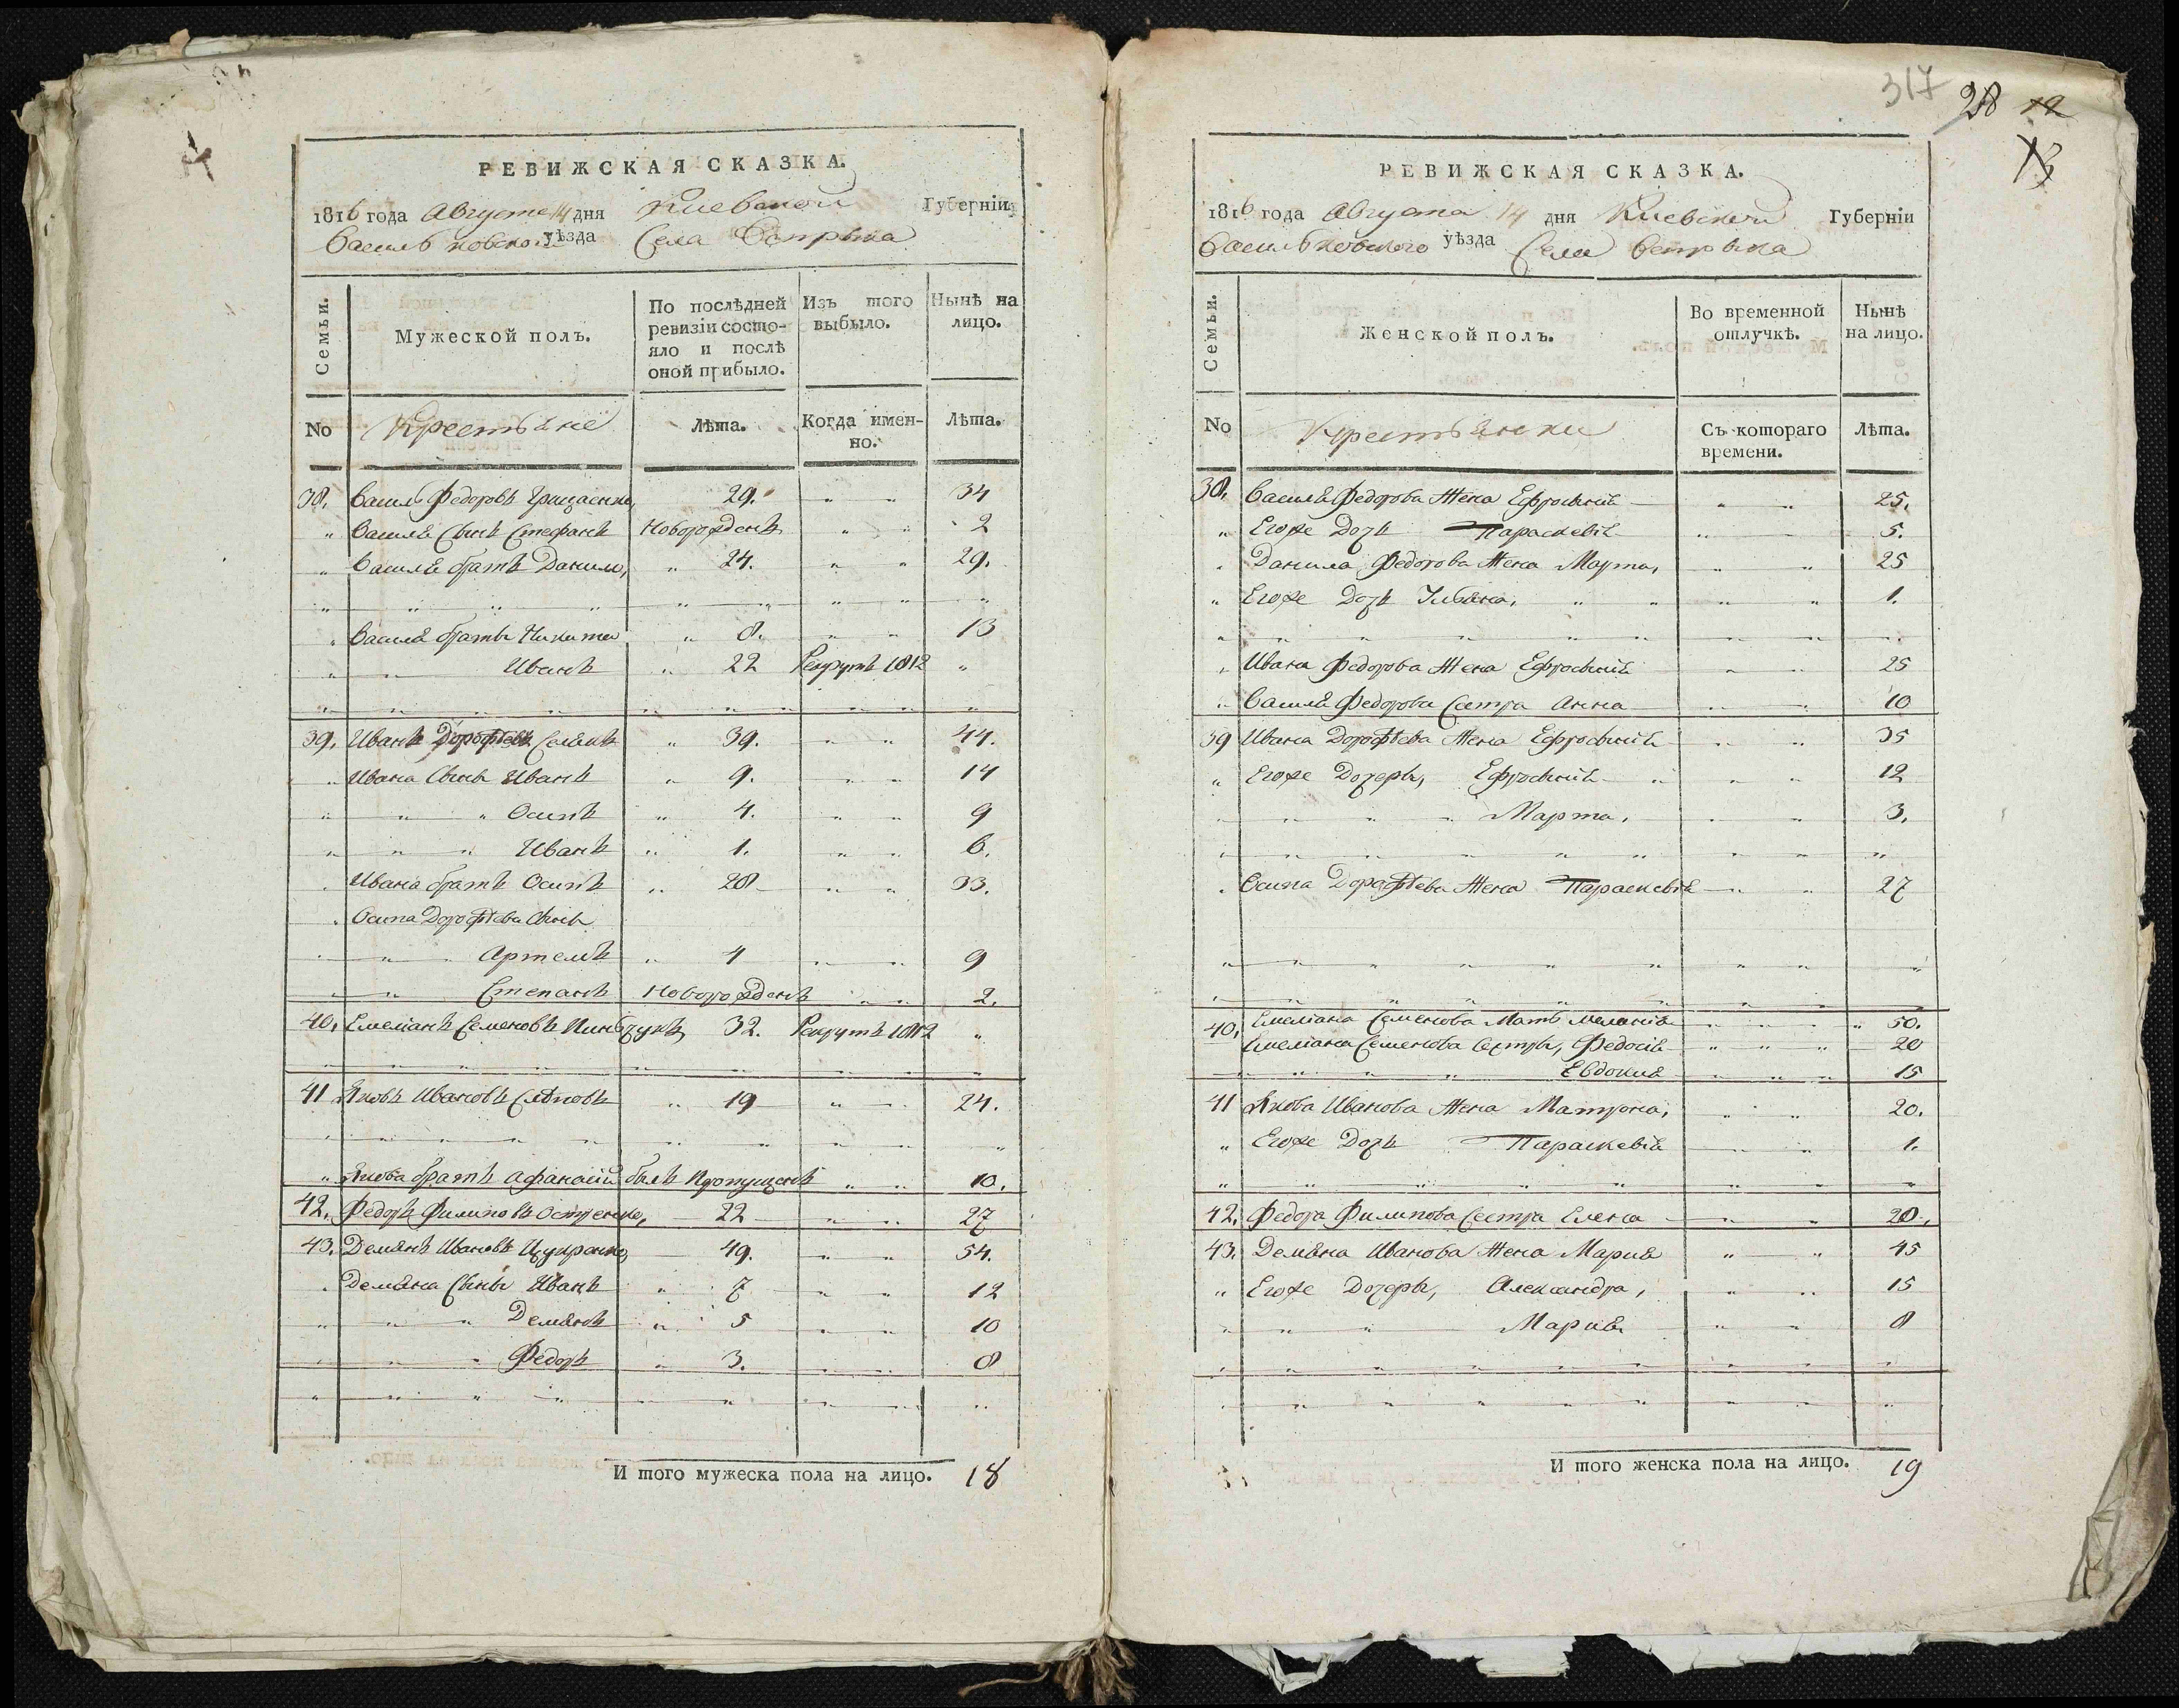 РЕВИЖСКАЯ СКАЗКА.
1816 года Августа 14 дня Киевской Губерніи
Васильковского уѣзда Села Вотрына
Семьи. Мужеской полъ. По послѣдней ревизіи состояло и послѣ оной прибыло. Изъ того выбыло. Нынѣ на лицо.
No Крестьяне Лѣта. Когда именно. Лѣта.
38. Василь Федоровъ Грицаенко, 29. " " 34
" Василя Сынъ Стефанъ Новорожденъ " " 2
" Василя братъ Данило, " 24. " " 29.
" Василя братъ Никита " 8. " " 13
" " Иванъ " 22 Рекрутъ 1812 "
39. Иванъ Дорофѣевъ " 39. " " 44.
" Ивана Сынъ Иванъ " 9. " " 14
" " " Осипъ " 4. " " 9
" " " Иванъ " 1. " " 6.
" Ивана братъ Осипъ " 28 " " 33.
" Осипа Дорофѣева Сынъ
" " Артемъ " 4 " " 9
" " Степанъ Новорожденъ " " 2.
40. Емеліанъ Семеновъ 32. Рекрутъ 1812 "
41 Яковъ Ивановъ " 19 " " 24.
" Якова братъ Афанасій былъ Пропущенъ " " 10.
42. Федоръ Филиповъ 22 " " 27
43. Демянъ Ивановъ 49. " " 54.
" Демяна Сыны Иванъ " 7 " " 12
" " " Демянъ " 5 " " 10
" " " Федоръ " 3. " " 8
И того мужеска пола на лицо. 18
317 28 12
13
РЕВИЖСКАЯ СКАЗКА.
1816 года Августа 14 дня Киевской Губерніи
Васильковского уѣзда Села
Семьи. Женской полъ. Во временной отлучкѣ. Нынѣ на лицо.
No Крестьянки Съ котораго времени. Лѣта.
38. Василя Федорова Жена Ефросинія " " 25.
" Егоже Дочь Параскевія " " 5.
" Данила Федорова Жена Марта, " " 25
" Егоже Дочь Уляна, " " 1.
" Ивана Федорова Жена Ефросинія " " 25
" Василя Федорова Сестра Анна " " 10
39 Ивана Дорофѣева Жена Ефросинія " " 35
" Егоже Дочери, Ефросинія " " 12
" " " Марта, " " 3.
" Осипа Дорофѣева Жена Параскевія " " 27
40. Емеліана Семенова Мать Меланія " " 50.
Емеліана Семенова Сестры, Федосія " " 20
" " Евдокия " " 15
41 Якова Иванова Жена Матрона, " " 20.
" Егоже Дочь Параскевія " " 1.
42. Федора Филипова Сестра Елена " " 20.
43. Демяна Иванова Жена Мария " " 45
" Егоже Дочери, Александра, " " 15
" " " Мария " " 8
И того женска пола на лицо. 19